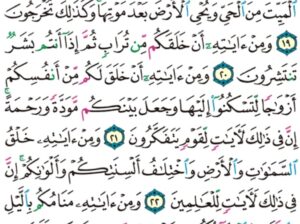 الْمَيِّتَ مِنَ الْحَيِّ وَيُحْيِي الْأَرْضَ بَعْدَ مَوْتِهَا وَكَذَٰلِكَ تُخْرَجُونَ
١٩ وَمِنْ ءَايَٰتِهِۦٓ أَنْ خَلَقَكُم مِّن تُرَابٍ ثُمَّ إِذَآ أَنتُم بَشَرٌ
تَنتَشِرُونَ ٢٠ وَمِنْ ءَايَٰتِهِۦٓ أَنْ خَلَقَ لَكُم مِّنْ أَنفُسِكُمْ
أَزْوَٰجًا لِّتَسْكُنُوٓا۟ إِلَيْهَا وَجَعَلَ بَيْنَكُم مَّوَدَّةً وَرَحْمَةً ۚ
إِنَّ فِى ذَٰلِكَ لَءَايَٰتٍ لِّقَوْمٍ يَتَفَكَّرُونَ ٢١ وَمِنْ ءَايَٰتِهِۦ خَلْقُ
السَّمَٰوَٰتِ وَالْأَرْضِ وَاخْتِلَٰفُ أَلْسِنَتِكُمْ وَأَلْوَٰنِكُمْ ۚ إِنَّ
فِى ذَٰلِكَ لَءَايَٰتٍ لِّلْعَٰلِمِينَ ٢٢ وَمِنْ ءَايَٰتِهِۦ مَنَامُكُم بِالَّيْلِ